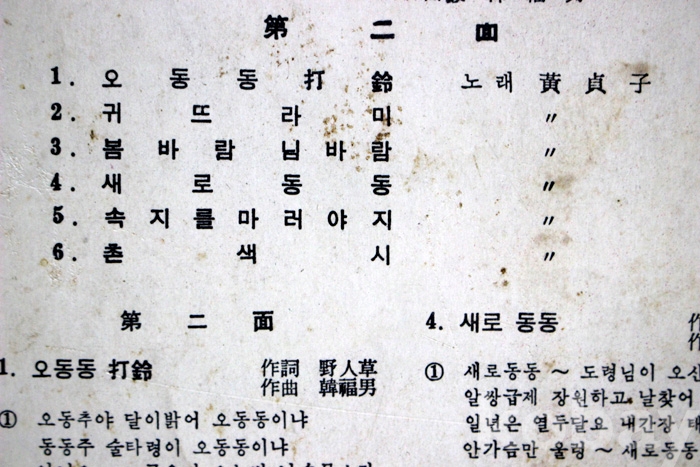 第二面
1. 오동동打鈴 노래 黃貞子
2. 귀뜨라미 〃
3. 봄바람님바람 〃
4. 새로동동 〃
5. 속지를마러야지 〃
6. 촌색시 〃
第二面
1. 오동동 打鈴
作詞 野人草
作曲 韓福男
① 오동추야 달이밝어 오동동이냐
동동주 술타령이 오동동이냐
4. 새로 동동
作
作
① 새로동동 ~ 도령님이 오신
알쌍급제 장원하고 날찾어
일년은 열두달요 내간장 태
안가슴만 울렁 ~ 새로동동